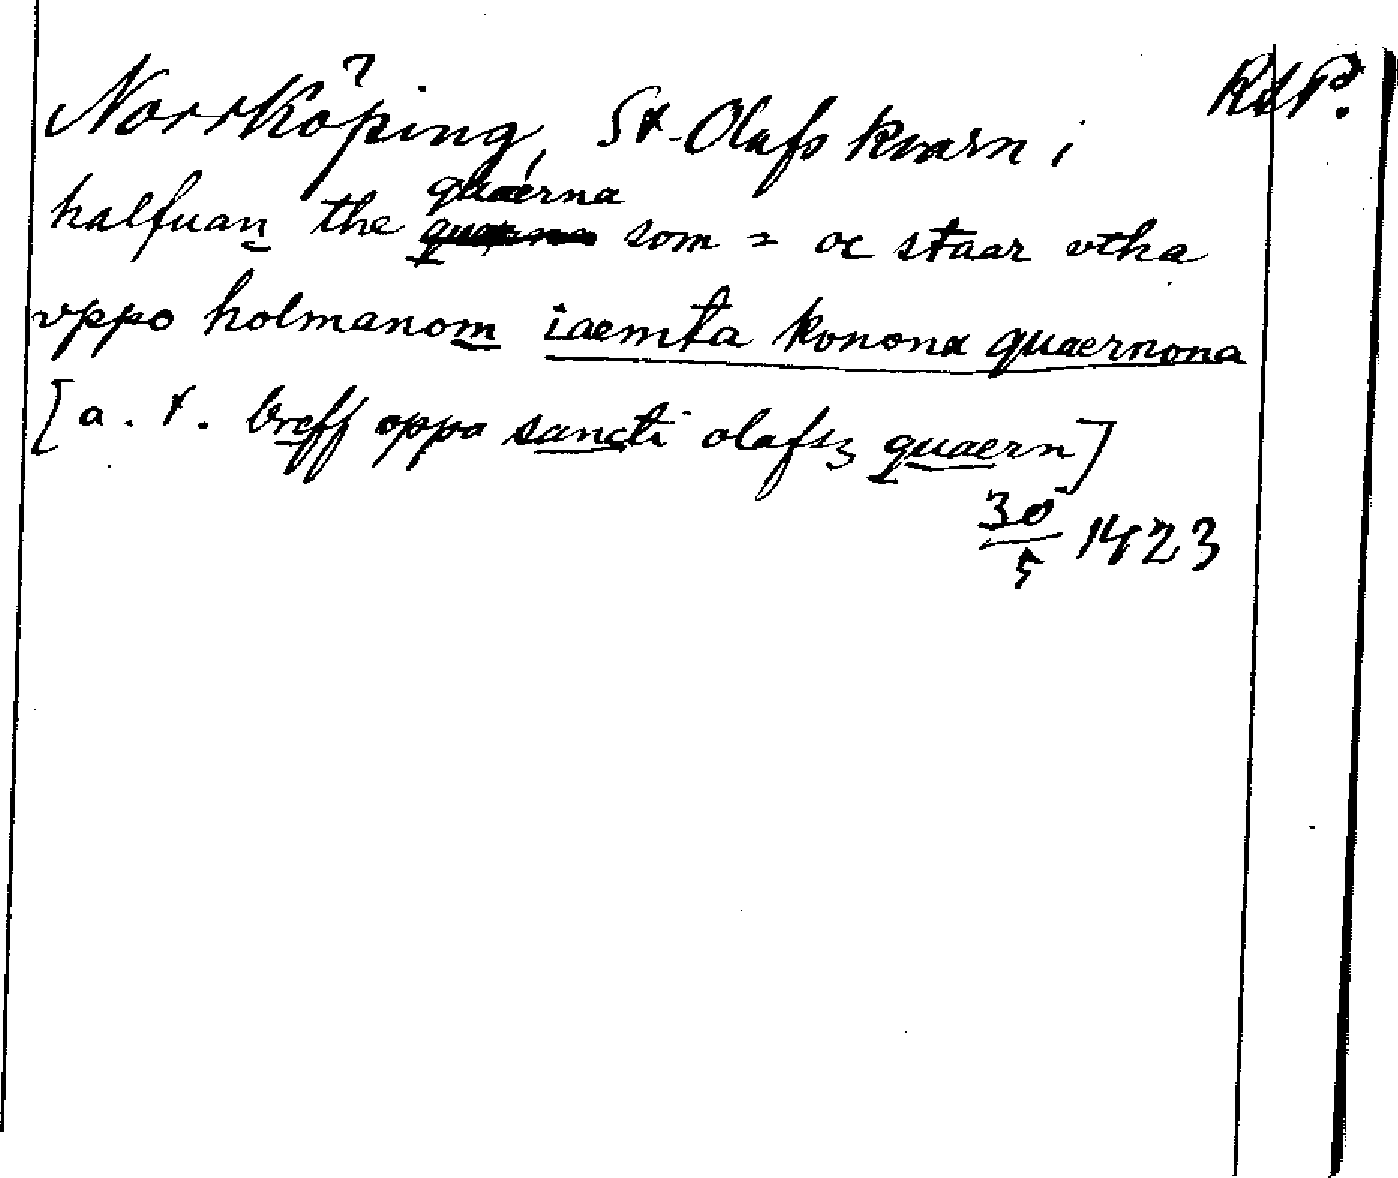 Norrköping, St. Olafs kvarn i RAP.
halfuan the quaerna som = oc staar vtha
vppo holmanom iaemta konona quaernona
[a. t. breff oppa sancti olafs quaern]
30/5 1423